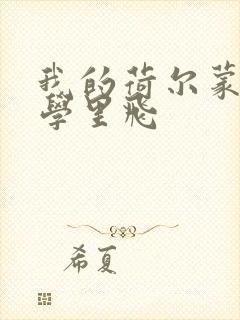 我的荷尔蒙
學里飛
希夏